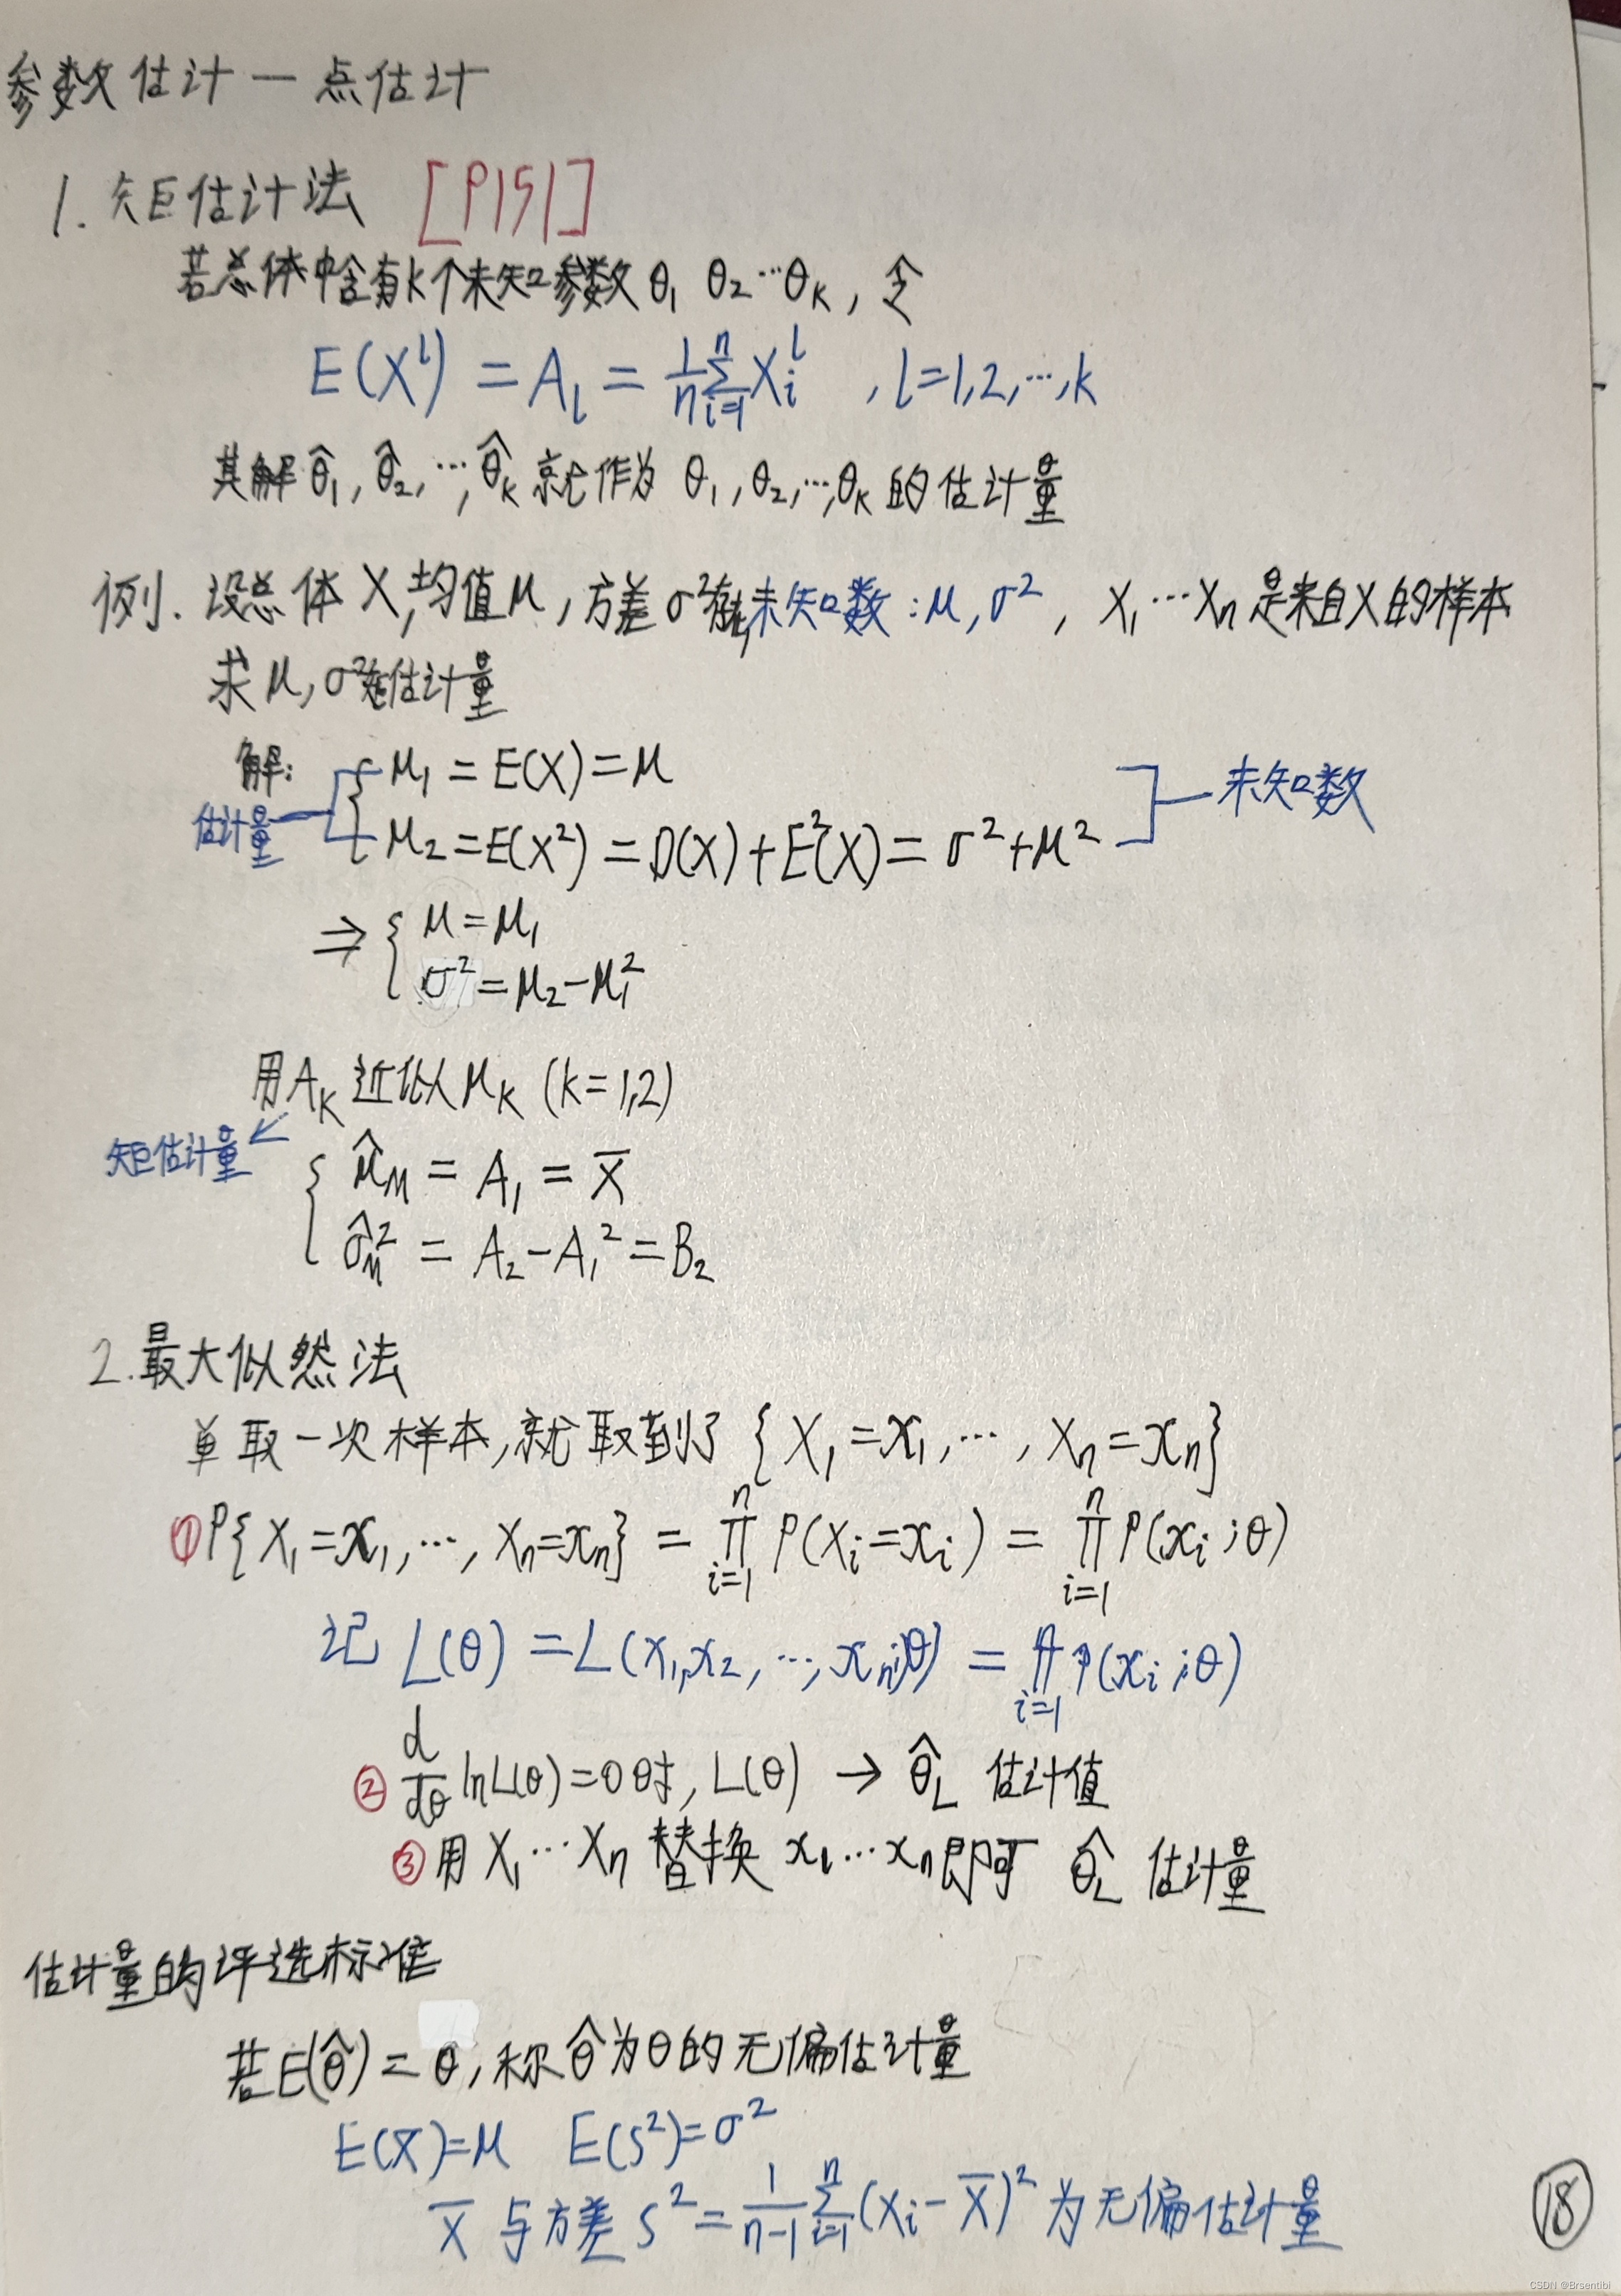 参数估计一点估计
1. 矩估计法 [P151]
若总体中含有k个未知参数 θ₁ θ₂…θₖ, 令
E(Xˡ) = Aₗ = 1/n Σᵢ₌₁ⁿ Xᵢˡ , l=1,2,…,k
其解 θ̂₁, θ̂₂, …, θ̂ₖ 就作为 θ₁, θ₂, …, θₖ 的估计量
例. 设总体X, 均值μ, 方差σ² 未知数: μ, σ², X₁…Xₙ是来自X的样本
求μ, σ² 估计量
解: { μ₁ = E(X) = μ
估计量 μ₂ = E(X²) = D(X) + E²(X) = σ² + μ² 未知数
⇒ { μ = μ₁
σ² = μ₂ − μ₁²
用Aₖ近似μₖ (k=1,2)
矩估计量 { μ̂_M = A₁ = X̄
σ̂²_M = A₂ − A₁² = B₂
2. 最大似然法
单取一次样本, 就取到了 {X₁ = x₁, …, Xₙ = xₙ}
① P{X₁=x₁, …, Xₙ=xₙ} = ∏ᵢ₌₁ⁿ P(Xᵢ=xᵢ) = ∏ᵢ₌₁ⁿ P(xᵢ;θ)
记 L(θ) = L(x₁,x₂,…,xₙ;θ) = ∏ᵢ₌₁ⁿ P(xᵢ;θ)
② d/dθ lnL(θ)=0时, L(θ) → θ̂_L 估计值
③ 用X₁…Xₙ替换x₁…xₙ即可 θ̂_L 估计量
估计量的评选标准
若E(θ̂) = θ, 称θ̂为θ的无偏估计量
E(X̄)=μ E(S²)=σ²
X̄与方差S² = 1/(n−1) Σᵢ₌₁ⁿ (Xᵢ−X̄)² 为无偏估计量
18
CSDN @Brsentibi